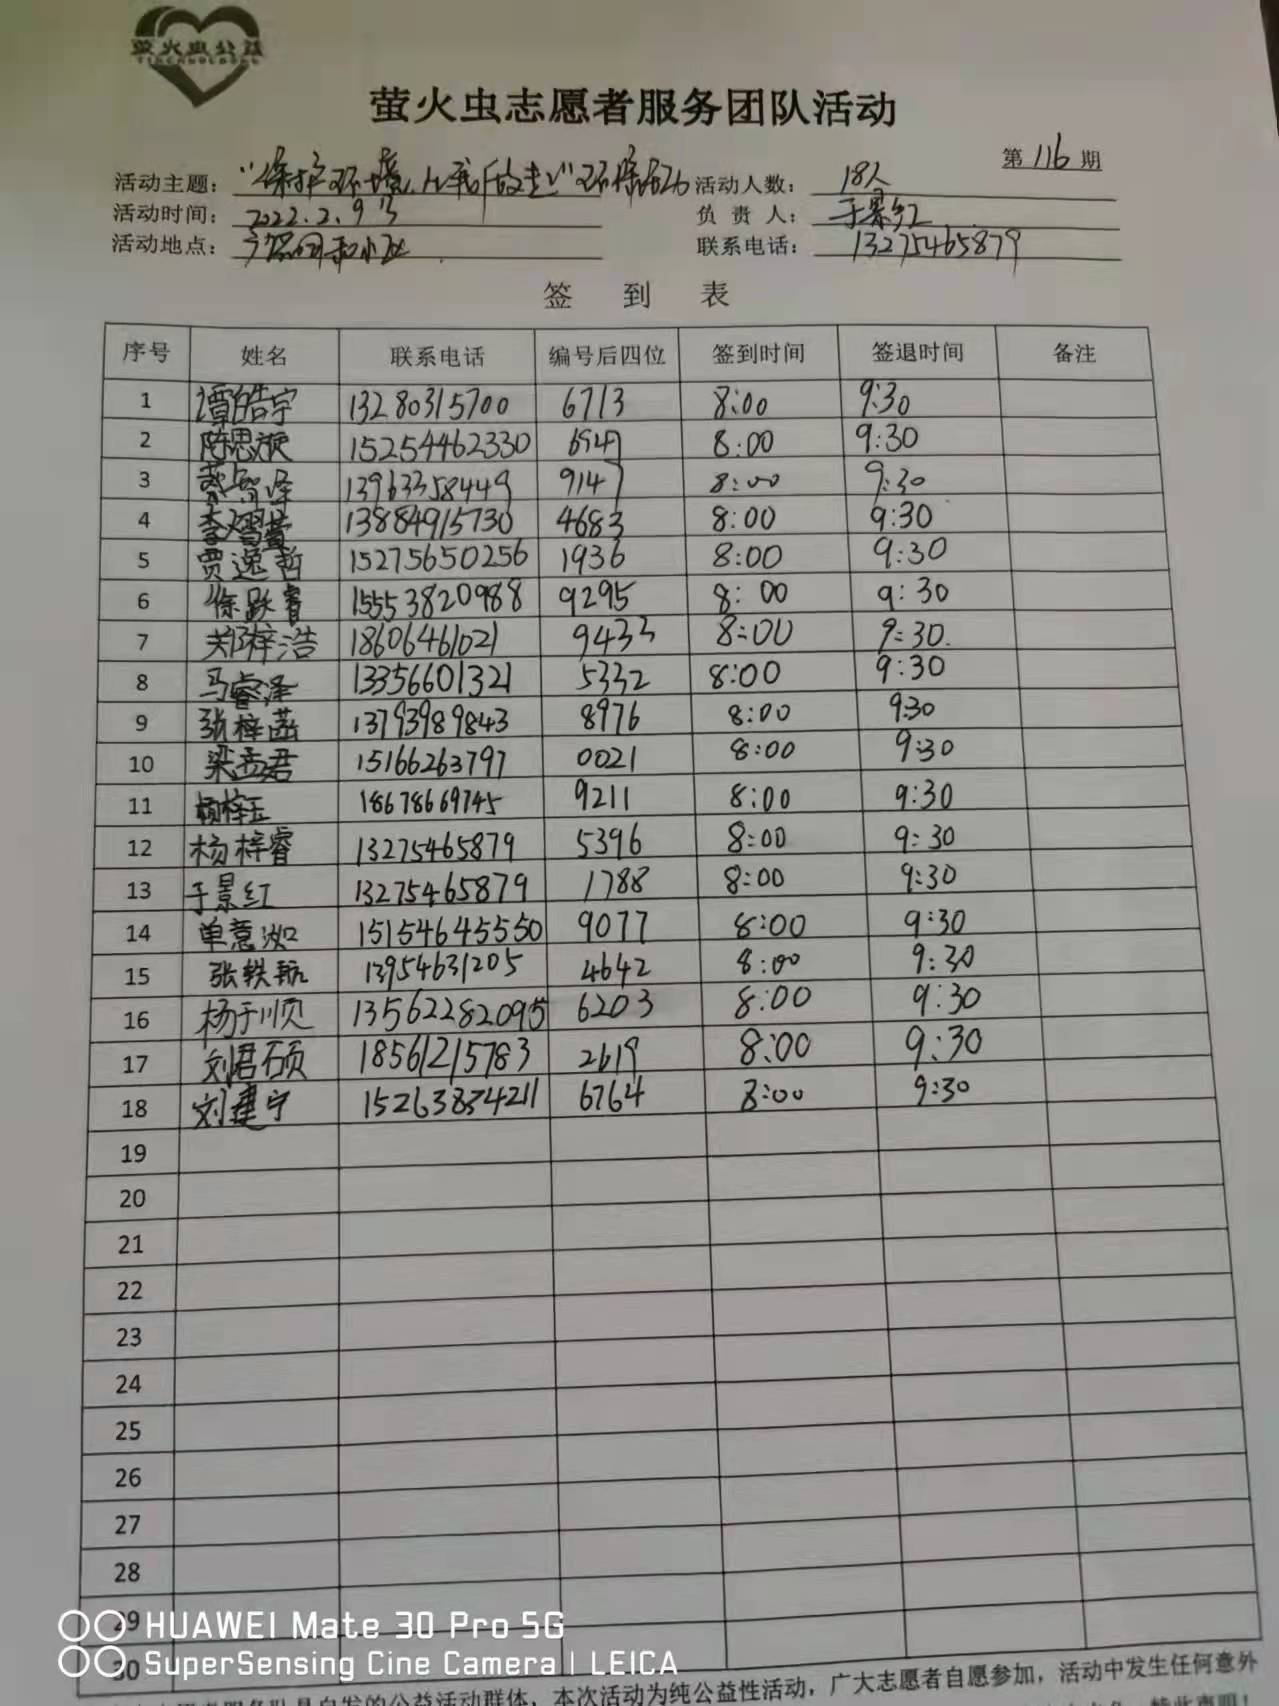 萤火虫公益
萤火虫志愿者服务团队活动
第 116 期
活动主题：“保护环境，从我做起”环保活动 活动人数：18人
活动时间：2022.2.9号 负责人：于景红
活动地点：广饶 和小区 联系电话：13275465879
签到表
序号 姓名 联系电话 编号后四位 签到时间 签退时间 备注
1 谭皓宇 13280315700 6713 8:00 9:30
2 陈思颀 15254462330 6947 8:00 9:30
3 13963358449 9147 8:00 9:30
4 13884915730 4683 8:00 9:30
5 贾逸哲 15275650256 1936 8:00 9:30
6 徐跃睿 15553820988 9295 8:00 9:30
7 郑梓浩 18606461021 9433 8:00 9:30.
8 马睿泽 13356601321 5332 8:00 9:30
9 张梓茜 13793989843 8976 8:00 9:30
10 梁孟君 15166263797 0021 8:00 9:30
11 18678669745 9211 8:00 9:30
12 杨梓睿 13275465879 5396 8:00 9:30
13 于景红 13275465879 1788 8:00 9:30
14 单薏洳 15154645550 9077 8:00 9:30
15 张轶航 13954631205 4642 8:00 9:30
16 杨于顺 13562282095 6203 8:00 9:30
17 刘君硕 18561215783 2619 8:00 9:30
18 刘建宁 15263834211 6764 8:00 9:30
19
20
21
22
23
24
25
26
27
28
29
30
HUAWEI Mate 30 Pro 5G
SuperSensing Cine Camera | LEICA
志愿者服务队是自发的公益活动群体，本次活动为纯公益性活动，广大志愿者自愿参加，活动中发生任何意外
特此声明！